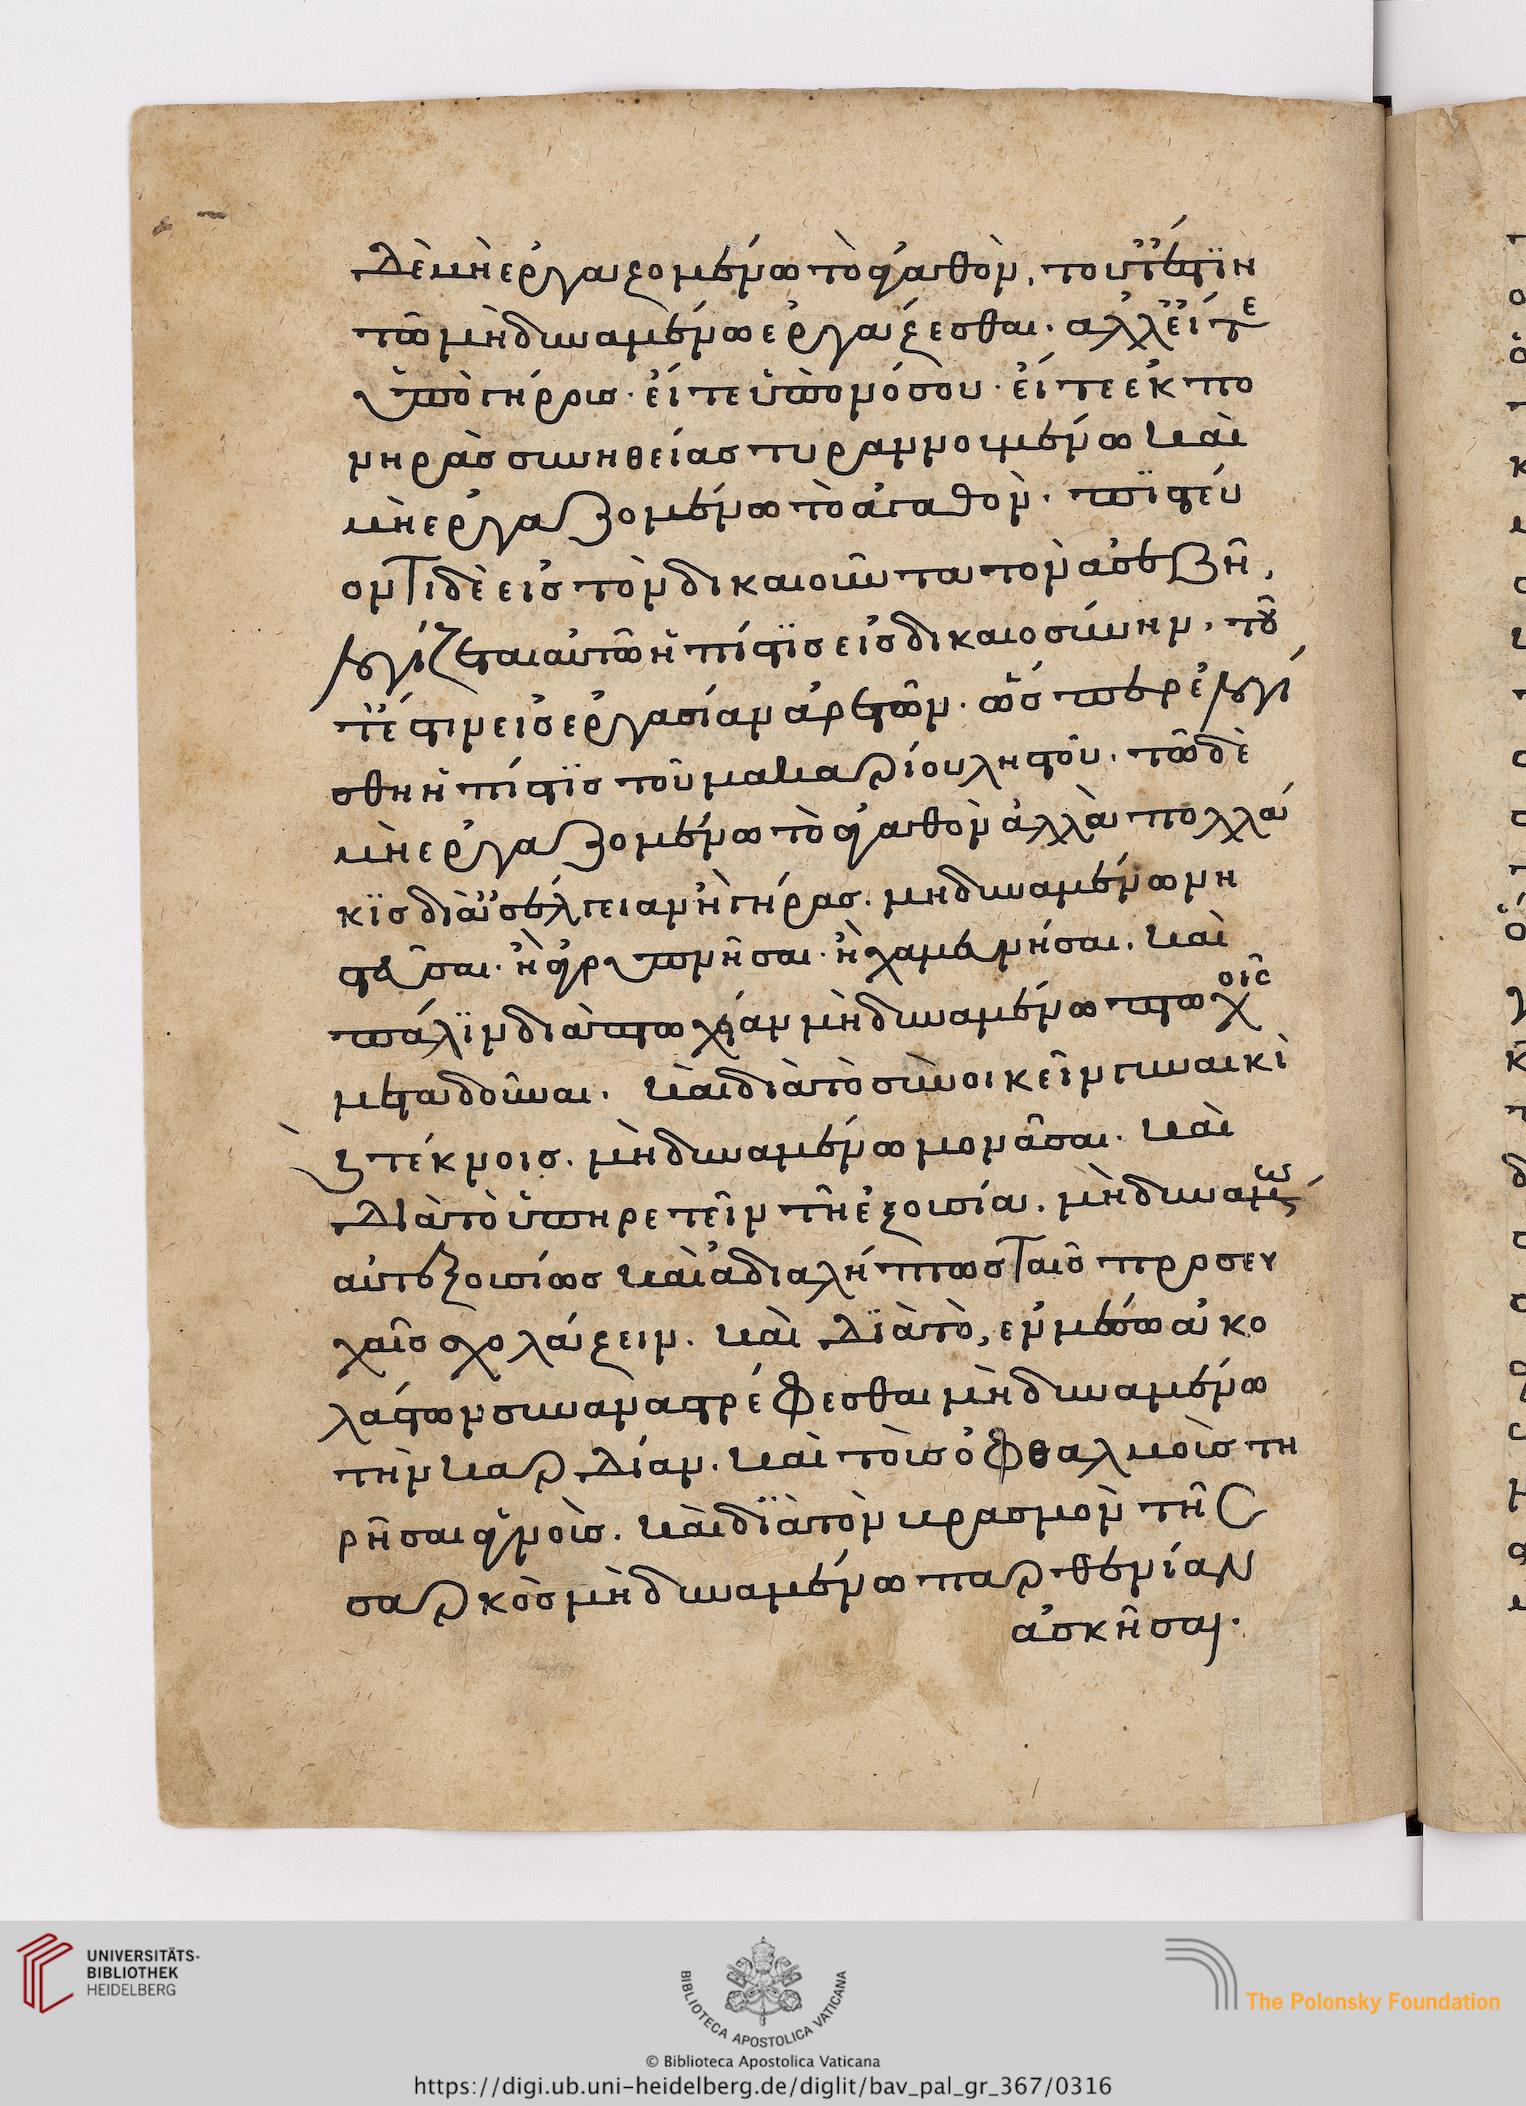 δὲ μὴ ἐργαζομένω τὸ ἀγαθὸν, τουτέστιν
τῶ μὴ δυναμένω ἐργάζεσθαι· ἀλλ εἴτε
ὑπὸ γήρους· εἴτε ὑπὸ νόσου· εἴτε ἐκ πο
νηρὰς συνηθείας τυραννουμένω καὶ
μὴ ἐργαζομένω τὸ ἀγαθὸν· πιστεύ
οντι δὲ εἰς τὸν δικαιοῦντα τὸν ἀσεβῆ,
λογίζεται αὐτῶ ἡ πίστις εἰς δικαιοσύνην, τοῦ
τέστιν εἰς ἐργασίαν ἀρετῶν· ὥσπερ ἐλογί
σθη ἡ πίστις τοῦ μακαρίου ληστοῦ· τῶ δὲ
μὴ ἐργαζομένω τὸ ἀγαθὸν ἀλλὰ πολλά
κις διὰ ἀσθένειαν ἢ γήρας· μὴ δυναμένω νη
στεῦσαι· ἢ ἀγρυπνῆσαι· ἢ χαμευνήσαι· καὶ
πάλιν διὰ πτωχείαν μὴ δυναμένω πτωχοῖς
μεταδοῦναι· καὶ διὰ τὸ συνοικεῖν γυναικὶ
καὶ τέκνοις· μὴ δυναμένω μονᾶσαι· καὶ
διὰ τὸ ὑπηρετεῖν τῆ ἐξουσία· μὴ δυναμένω
αὐτεξουσίως καὶ ἀδιαλήπτως ταῖς προσευ
χαῖς σχολάζειν· καὶ διὰ τὸ, ἐν μέσω ἀκο
λάστων συναναστρέφεσθαι μὴ δυναμένω
τὴν καρδίαν· καὶ τοὺς ὀφθαλμοὺς τη
ρῆσαι ἁγνούς· καὶ διὰ τὸν κρασμὸν τῆς
σαρκὸς μὴ δυναμένω παρθενίαν
ἀσκῆσαι·
UNIVERSITÄTS-
BIBLIOTHEK
HEIDELBERG
BIBLIOTECA APOSTOLICA VATICANA
The Polonsky Foundation
© Biblioteca Apostolica Vaticana
https://digi.ub.uni-heidelberg.de/diglit/bav_pal_gr_367/0316